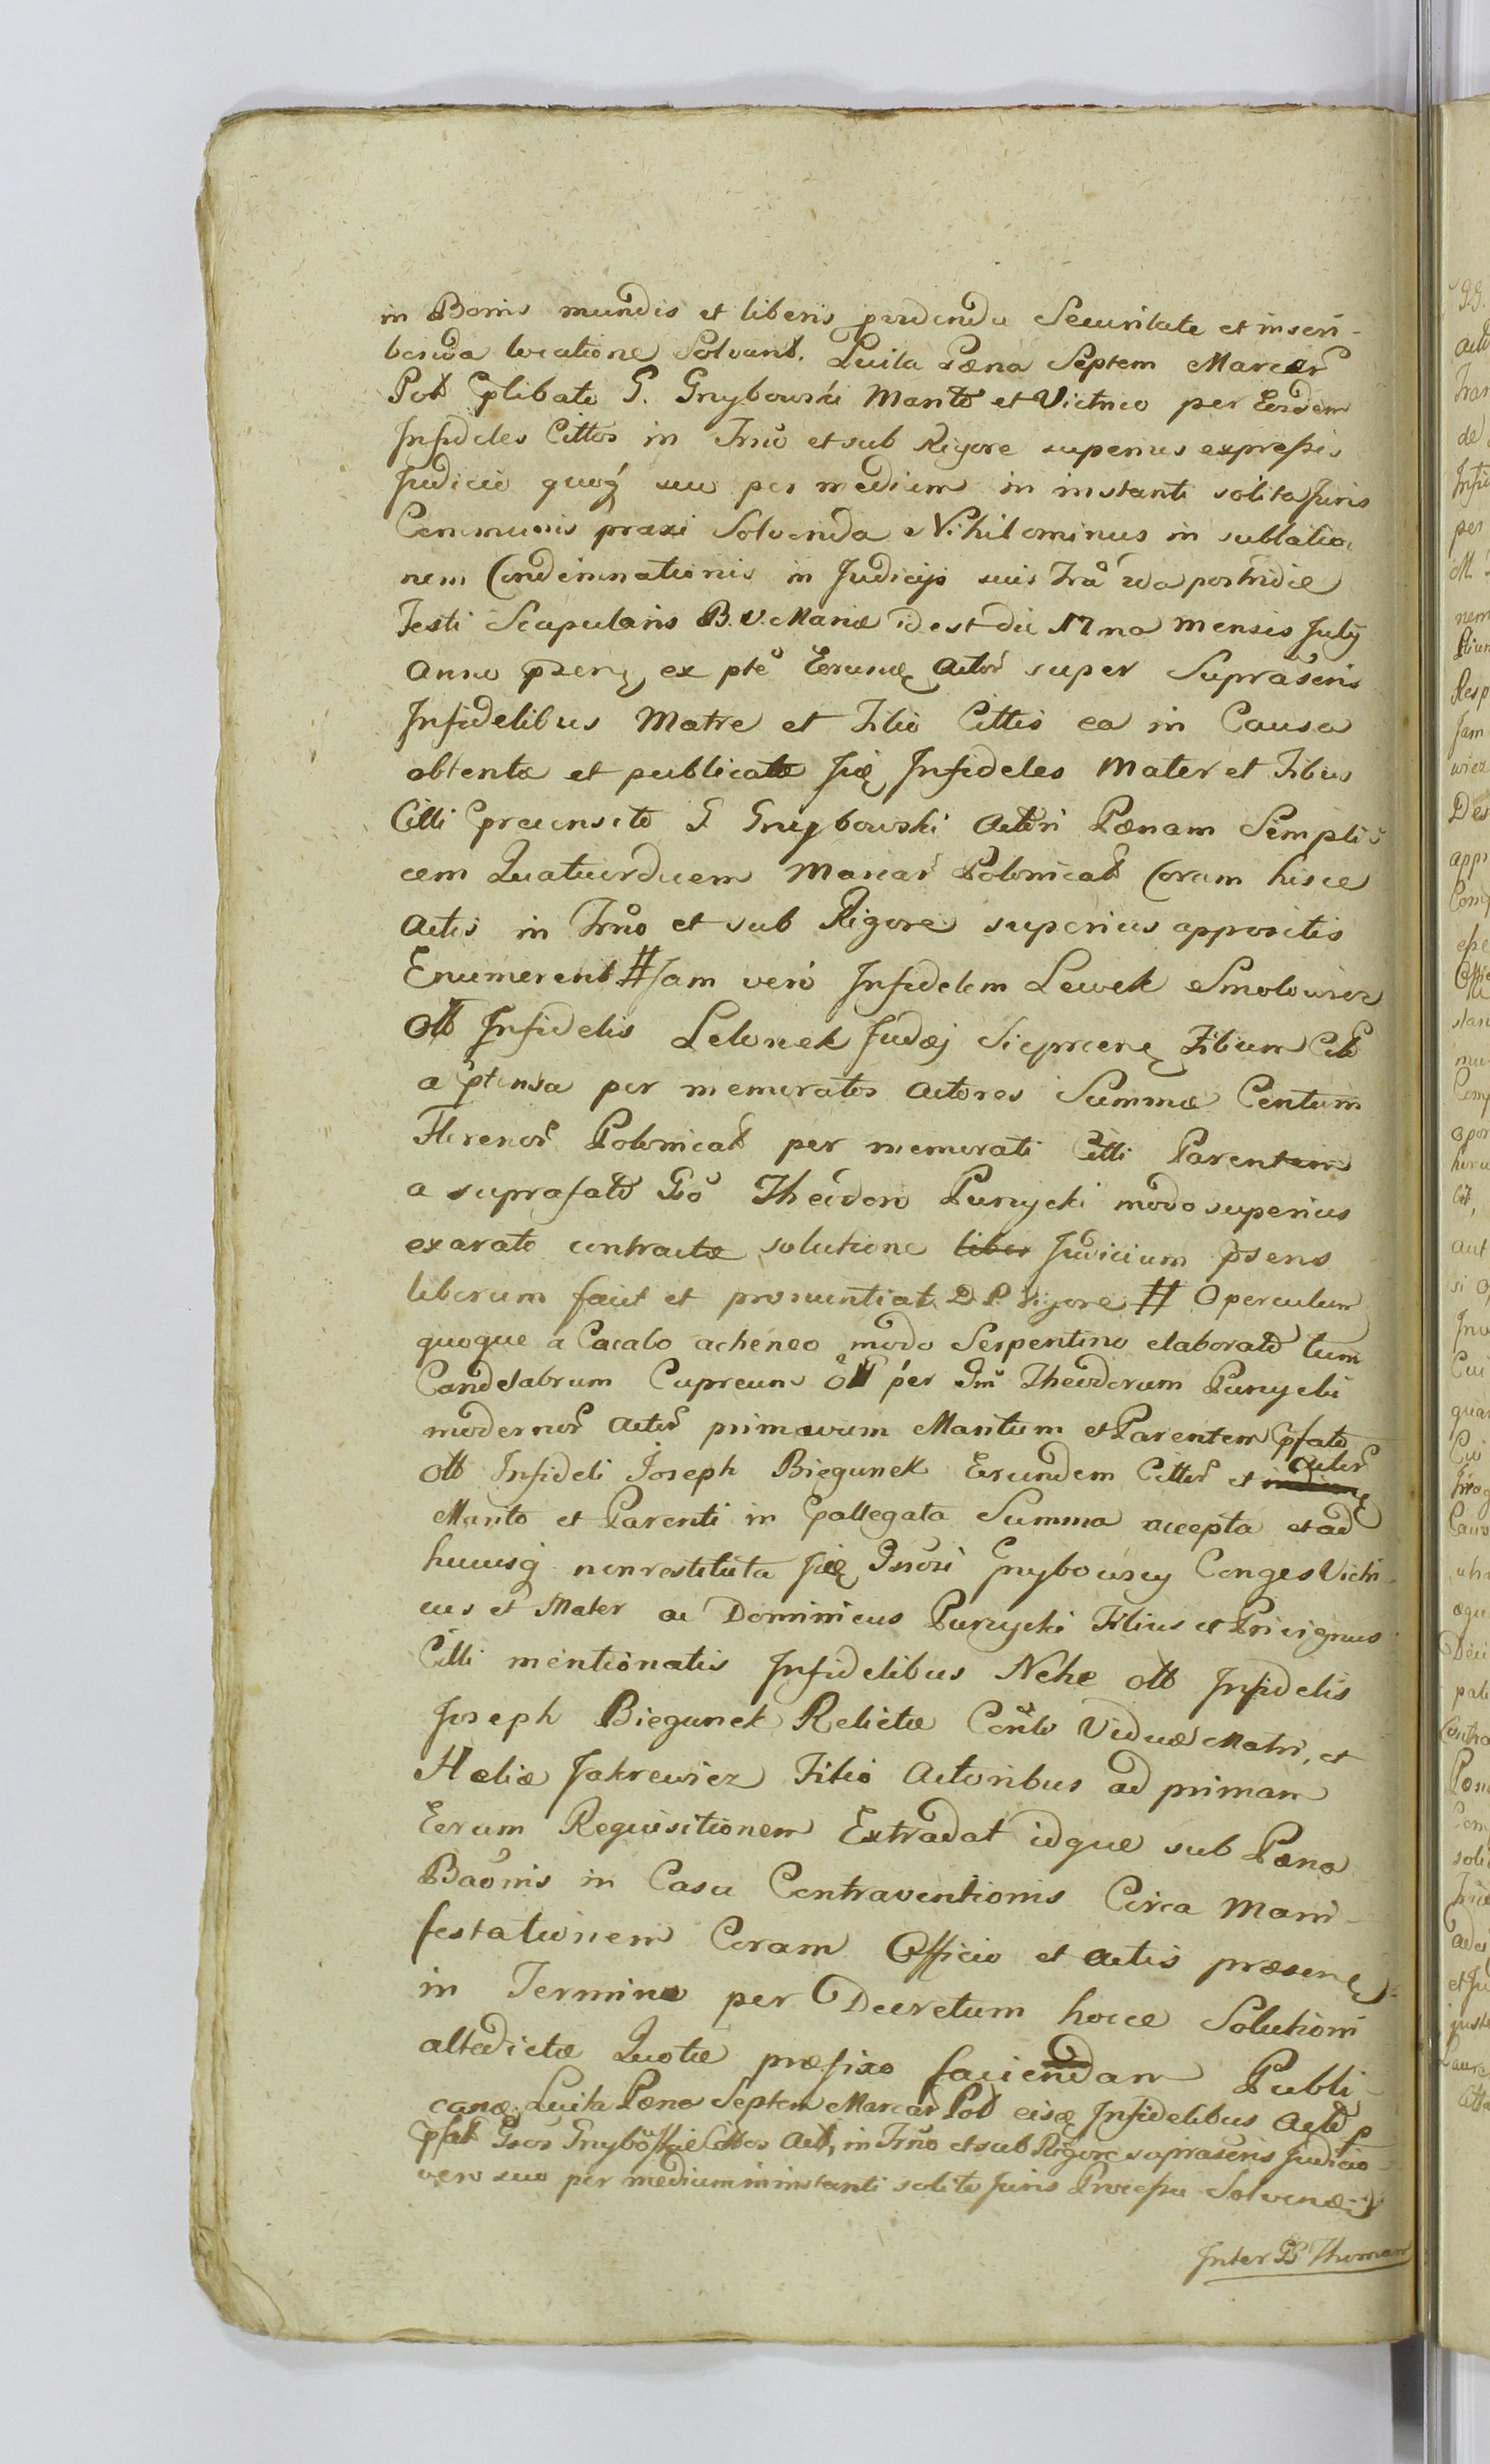 in Bonis mundis et liberis Securitate et inscri-
benda locatione Solvant. Luita Pæna Septem Marcar
Pol plibato G. Grzybowski Marito et Vitrico per Eosdem
Infideles Cittos in Trno et sub Rigore superius expressis
Judicio quoq suo per medium in instanti solita Juris
Communis praxi Solvenda Nihilominus in sublatio
nem Condemnationis in Judicijs suis postridie
Festi Scapularis B. V. Mariæ id est die 17ma mensis Julij
Anno ex pte Actor super Suprascris
Infidelibus Matre et Filio Cittis ea in Causa
obtentæ et publicatæ Infideles Mater et Filius
Citti precensito G Grzybowski Actori Pænam Sempli-
cem Quatuordecem Marcar Polonical Coram hisce
Actis in Trno et sub Rigore superius appositis
Enumerent # Jam vero Infidelem Lewek Smolowicz
Olt Infidelis Lelonek Judæj Filium Citt
a ptensa per memoratos Actores Summæ Centum
Florenor Polonical per memorati Citti Parentem
a suprafato Gso Theodoro Purzycki modo superius
exarato contractæ solutione liber Judicium psens
liberum facit et pronuntiat D. P. Vigore # Operculum
quoque a Cacabo acheneo modo Serpentino elaborato tum
Candelabrum Cupreum olt per Gm Theodorum Purzycki
modernor Actor primævum Maritum et Parentem pfato
Olt Infideli Joseph Biegunek Eorundem Cittor et Actor
Marito et Parenti in pallegata Summa accepta et ad
hucusq non restituta Gsosi Grzybowscy Conges Vitri-
cus et Mater ac Dominicus Purzycki Filius et Privignus
Citti mentionatis Infidelibus Nehe Olt Infidelis
Joseph Biegunek Relictæ Viduæ Matri, et
Hæliæ Jakrewicz Filio Actoribus ad primam
Eorum Requisitionem Extradat idque sub Pæna
Baonis in Casu Contraventionis Circa Mani-
festationem Coram Officio et Actis præsen
in Termino per Decretum hocce Solutioni
altedictæ Quotæ præfixo faciendam Publi-
canæ. Luita Pæna Septem Marcar Pol eisq Infidelibus Acto
pfat Gsos Cittos Act, in Trno et sub Rigore suprascris Judicio
vero suo per medium in instanti solito Juris Processu Solven
Inter G Thomam